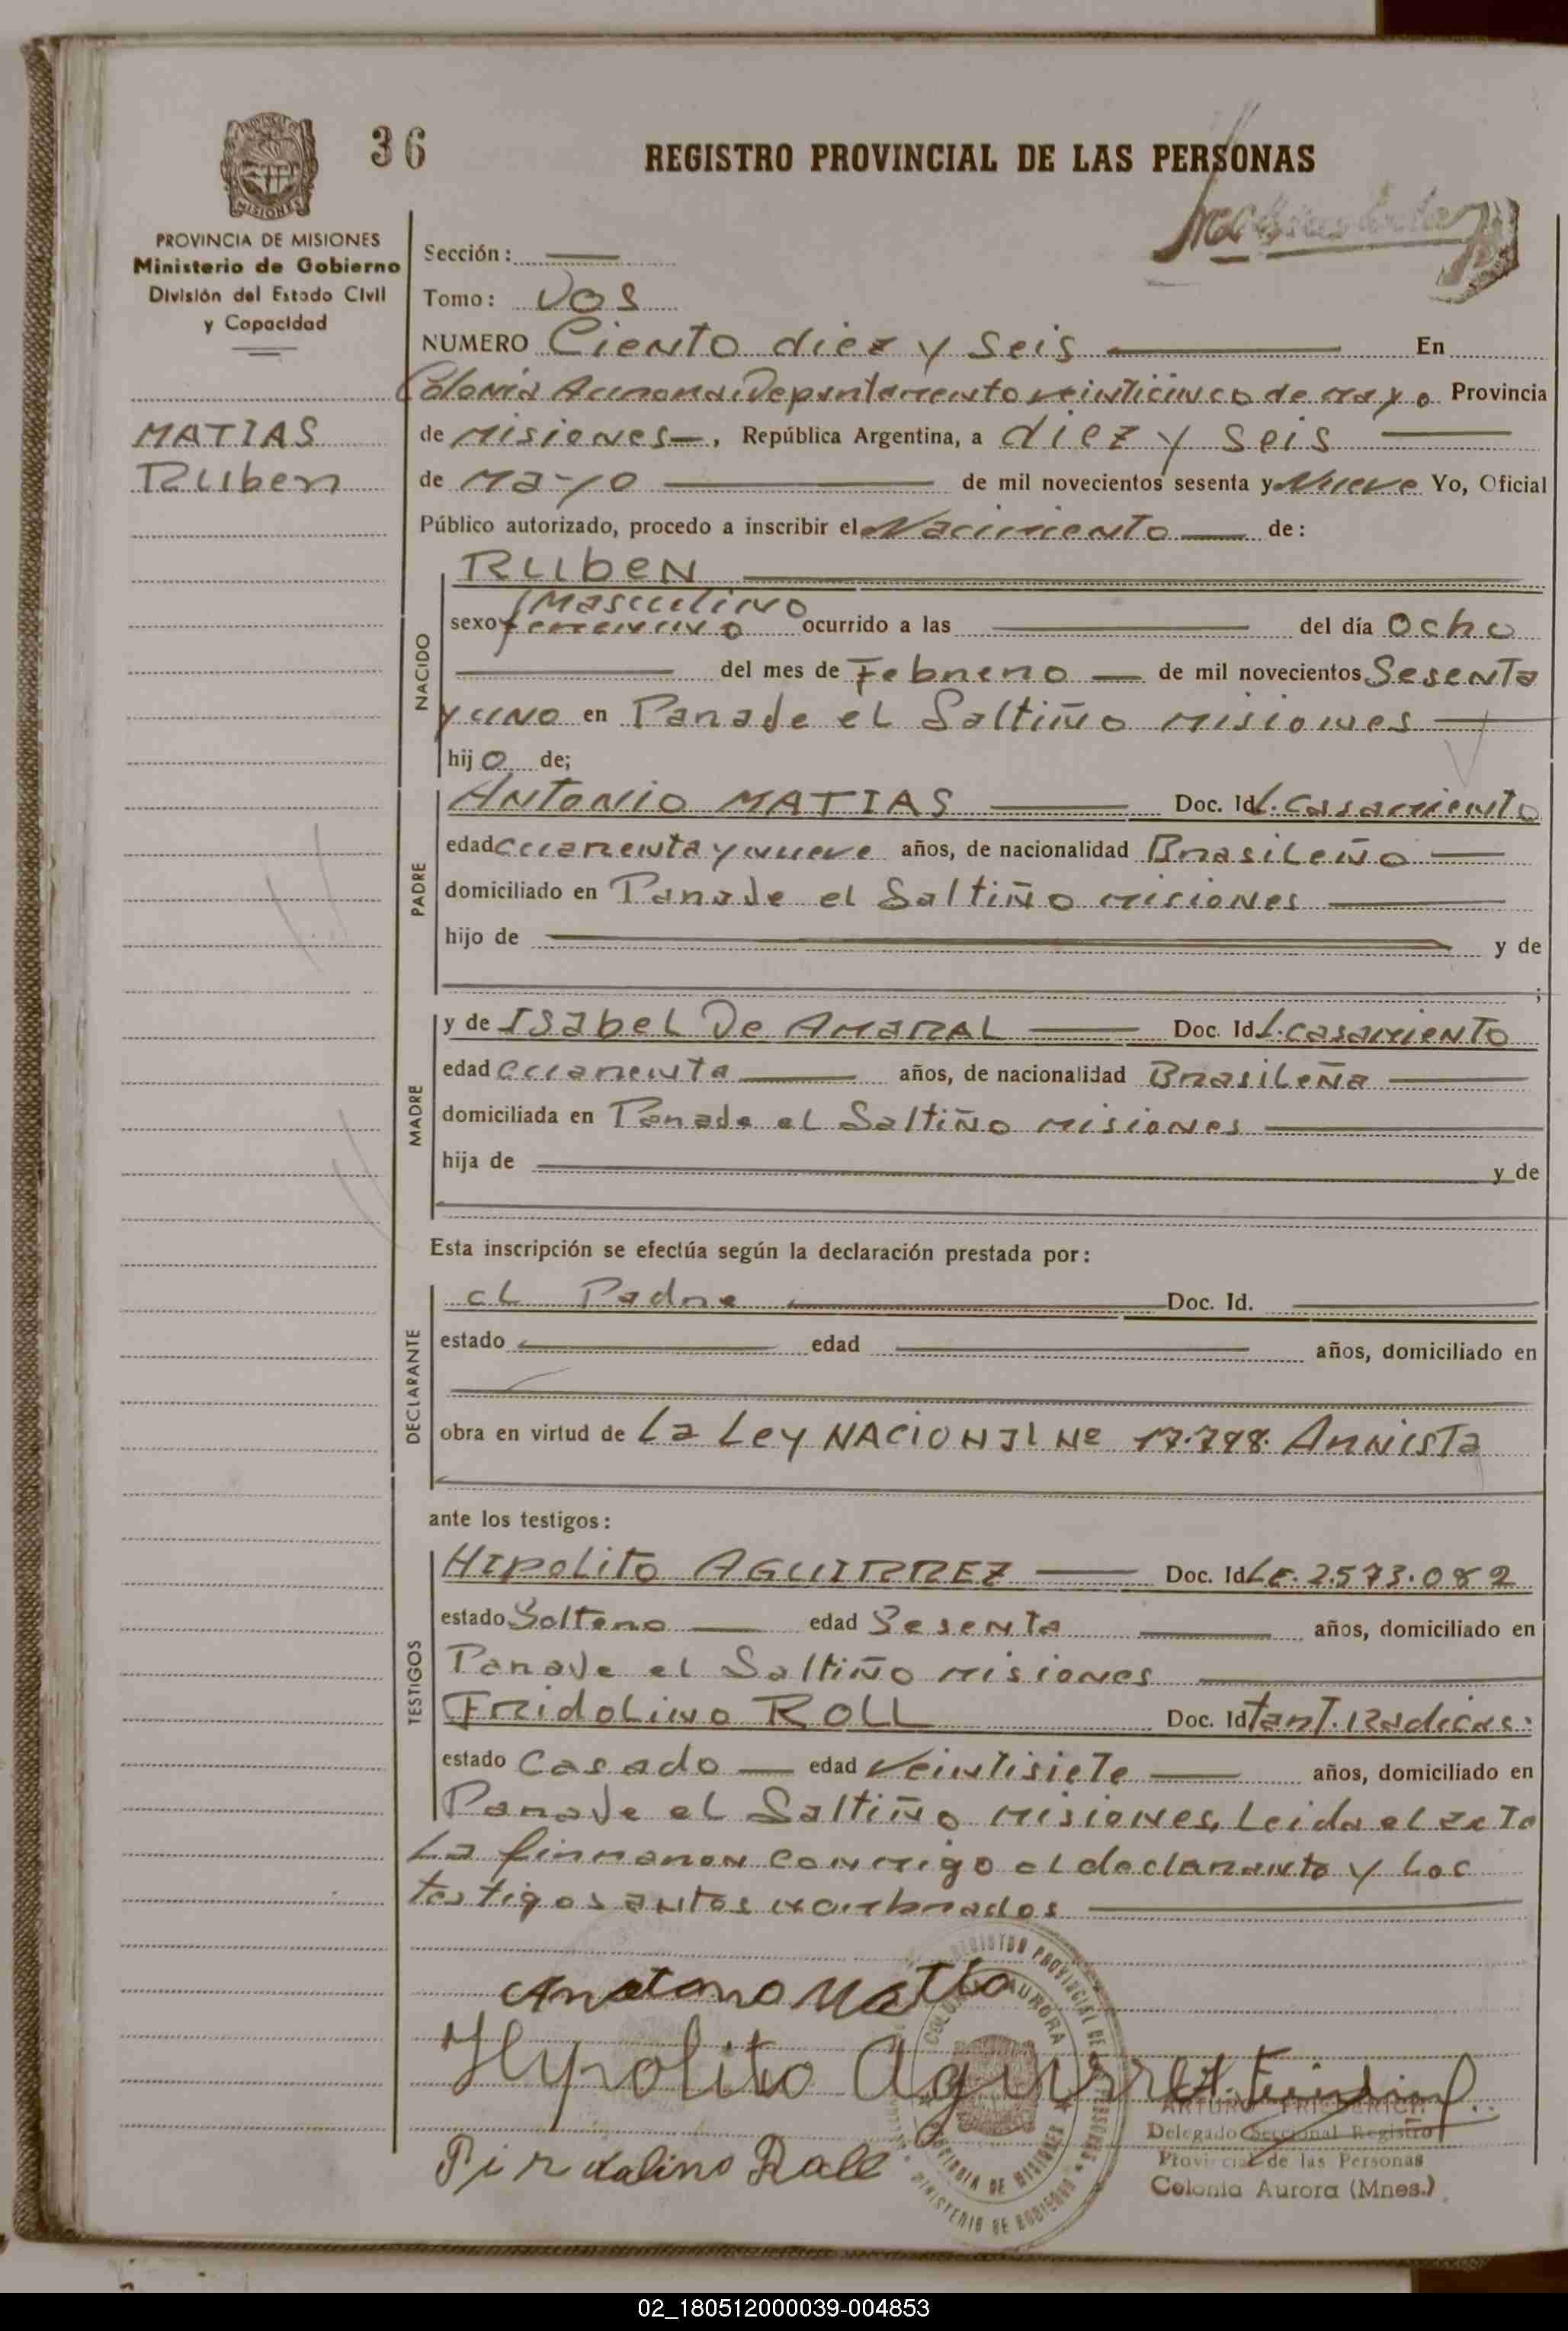 36
REGISTRO PROVINCIAL DE LAS PERSONAS
MISIONES
PROVINCIA DE MISIONES
Ministerio de Gobierno
División del Estado Civil
y Capacidad
MATIAS
Ruben
Sección:
Tomo: Dos
NUMERO Ciento diez y seis En
Colonia Aurora Departamento veinticinco de mayo Provincia
de Misiones, República Argentina, a diez y seis
de Mayo de mil novecientos sesenta y Nueve Yo, Oficial
Público autorizado, procedo a inscribir el Nacimiento de:
NACIDO
RUbeN
Masculino
sexo femenino ocurrido a las del día Ocho
del mes de Febrero de mil novecientos Sesenta
y uno en Parade el Saltiño misiones
hijo de;
PADRE
Antonio MATIAS Doc. Id L. Casamiento
edad cuarenta y nueve años, de nacionalidad Brasileño
domiciliado en Parade el Saltiño misiones
hijo de y de
;
MADRE
y de Isabel De AMARAL Doc. Id L. casamiento
edad cuarenta años, de nacionalidad Brasileña
domiciliada en Parade el Saltiño misiones
hija de y de
Esta inscripción se efectúa según la declaración prestada por:
DECLARANTE
el Padre Doc. Id.
estado edad años, domiciliado en
obra en virtud de La Ley NACIONAL Nº 17.798. Annista
ante los testigos:
TESTIGOS
HIpolito AGUIRREZ Doc. Id LE. 2.573.082
estado Soltero edad Sesenta años, domiciliado en
Parade el Saltiño misiones
Fridolino ROLL Doc. Id Tarj. Radicac:
estado Casado edad veintisiete años, domiciliado en
Parade el Saltiño misiones, Leida el acta
La firmaron conmigo el declarante y los
testigos antes nombrados
Anotono Matto
Hypolito Aguirre
Pirdolino Rall
REGISTRO PROVINCIAL DE LAS PERSONAS
COLONIA AURORA
PROVINCIA DE MISIONES
MINISTERIO DE GOBIERNO
ARTURO FRIEDERICH
Delegado Seccional Registro
Provincial de las Personas
Colonia Aurora (Mnes.)
02_180512000039-004853